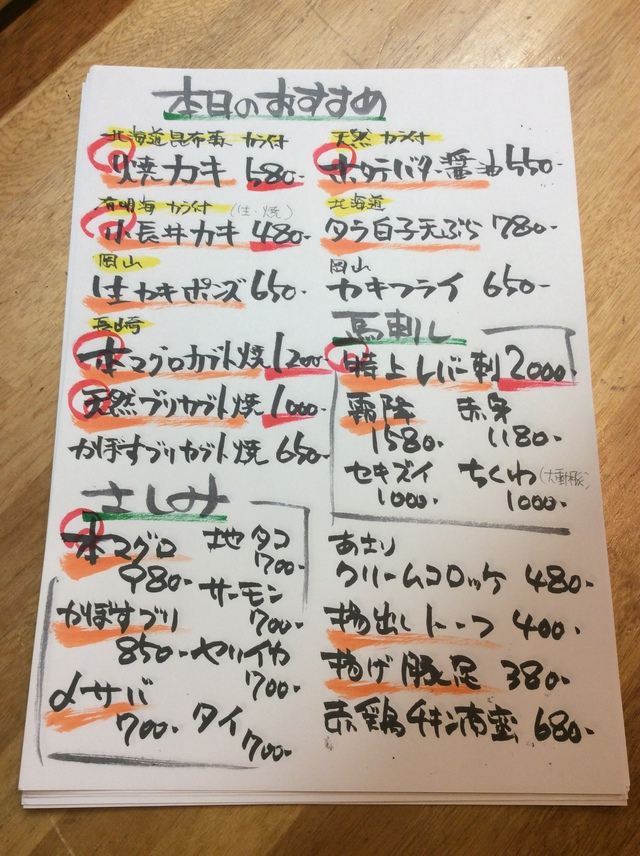 本日のおすすめ
北海道昆布森 カラ付
焼カキ 580-
有明海 カラ付 (生・焼)
小長井カキ 480-
岡山
生カキポンズ 650-
長崎
本マグロカブト焼 1200-
天然ブリカブト焼 1000-
かぼすブリカブト焼 650-
さしみ
本マグロ
980-
かぼすブリ
850-
〆サバ
700-
地タコ
700-
サーモン
700-
ヤリイカ
700-
タイ
700-
天然 カラ付
ホタテバター醤油 550-
北海道
タラ白子天ぷら 780-
岡山
カキフライ 650-
馬刺し
特上レバー刺 2000-
霜降
1580-
赤身
1180-
セキズイ
1000-
ちくわ(大動脈)
1000-
あさり
クリームコロッケ 480-
揚出しトーフ 400-
揚げ豚足 380-
赤鶏チキン南蛮 680-